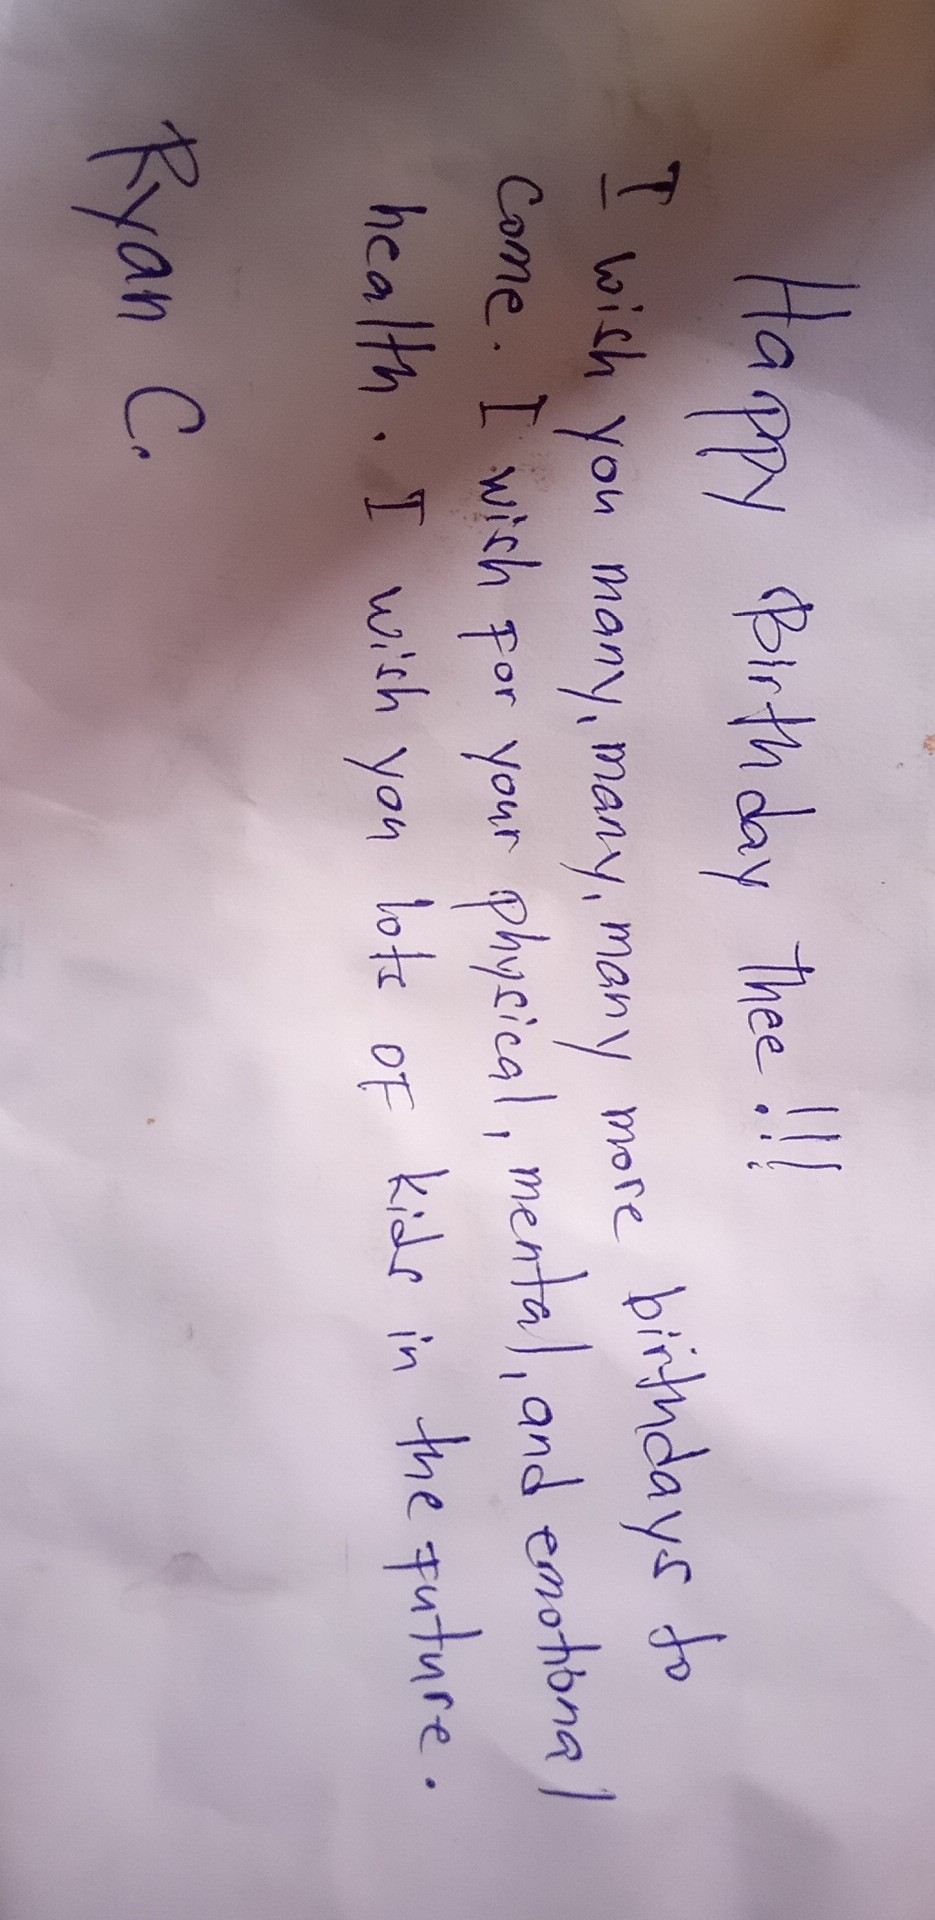 Happy Birthday Thee!!!
I wish you many, many, many more birthdays to
come. I wish for your physical, mental, and emotional
health. I wish you lots of kids in the future.
Ryan C.